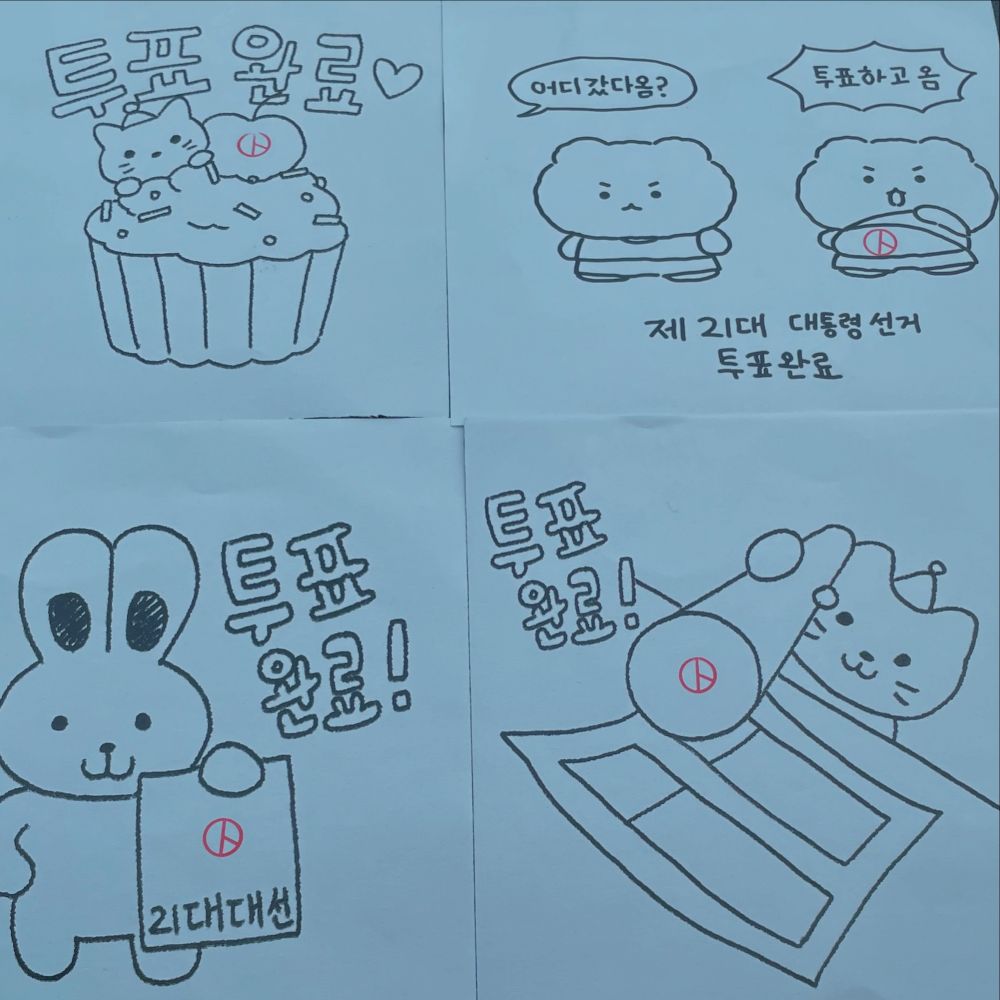 투표 완료♡
어디갔다옴?
투표하고 옴
제 21대 대통령선거
투표완료
투표
완료!
21대대선
투표
완료!